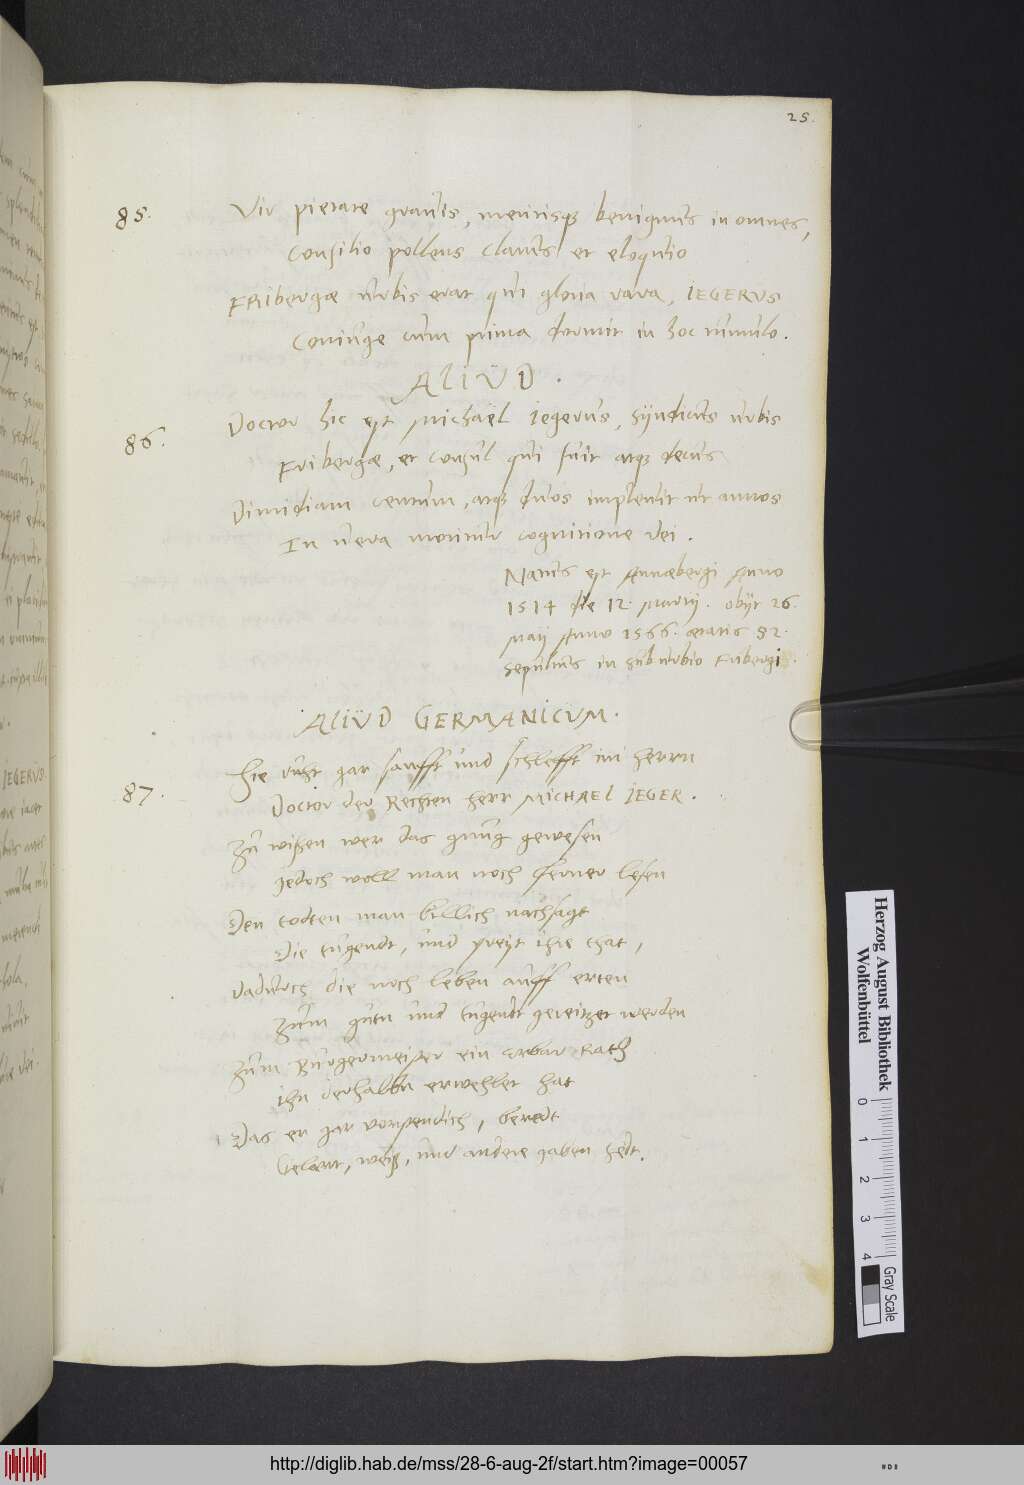 25.
85. Vir pietate gravis, meritisq; benignus in omnes,
Consilio pollens clarus et eloquio
FRibergæ urbis erat qui gloria rara, IEGERUS
Coniuge cum prima dormit in hoc tumulo.
ALIUD.
86. Doctor hic est Michaël Iegerus, Syndicus urbis
Fribergæ, et Consul qui fuit atq; decus
Dimidiam centum, atq; duos implevit ut annos
In vera moritur cognitione Dei.
Natus est Annæbergi Anno
1514 die 12. Martij. obijt 26.
Maij Anno 1566. ætatis 52.
sepultus in suburbio Fribergi.
ALIUD GERMANICUM.
87. Hie ruht gar sanfft und schlefft im herrn
Doctor der Rechten herr MICHAEL IEGER.
Zu wißen wer das gnung gewesen
Jedoch woll man noch ferner lesen
Den todten man billich nachsagt
Die tugendt, und preist ihre that,
Dadurch die noch leben auff erten
Zum gutn und tugendt gereitzet werden
Zum Burgermeister ein Erbar Rath
ihn derhalbn erwehlet hat
Das er gar vorstendich, beredt
Gelart, weiß, und andere gaben hedt.
Herzog August Bibliothek
Wolfenbüttel
0 1 2 3 4
Gray Scale
http://diglib.hab.de/mss/28-6-aug-2f/start.htm?image=00057